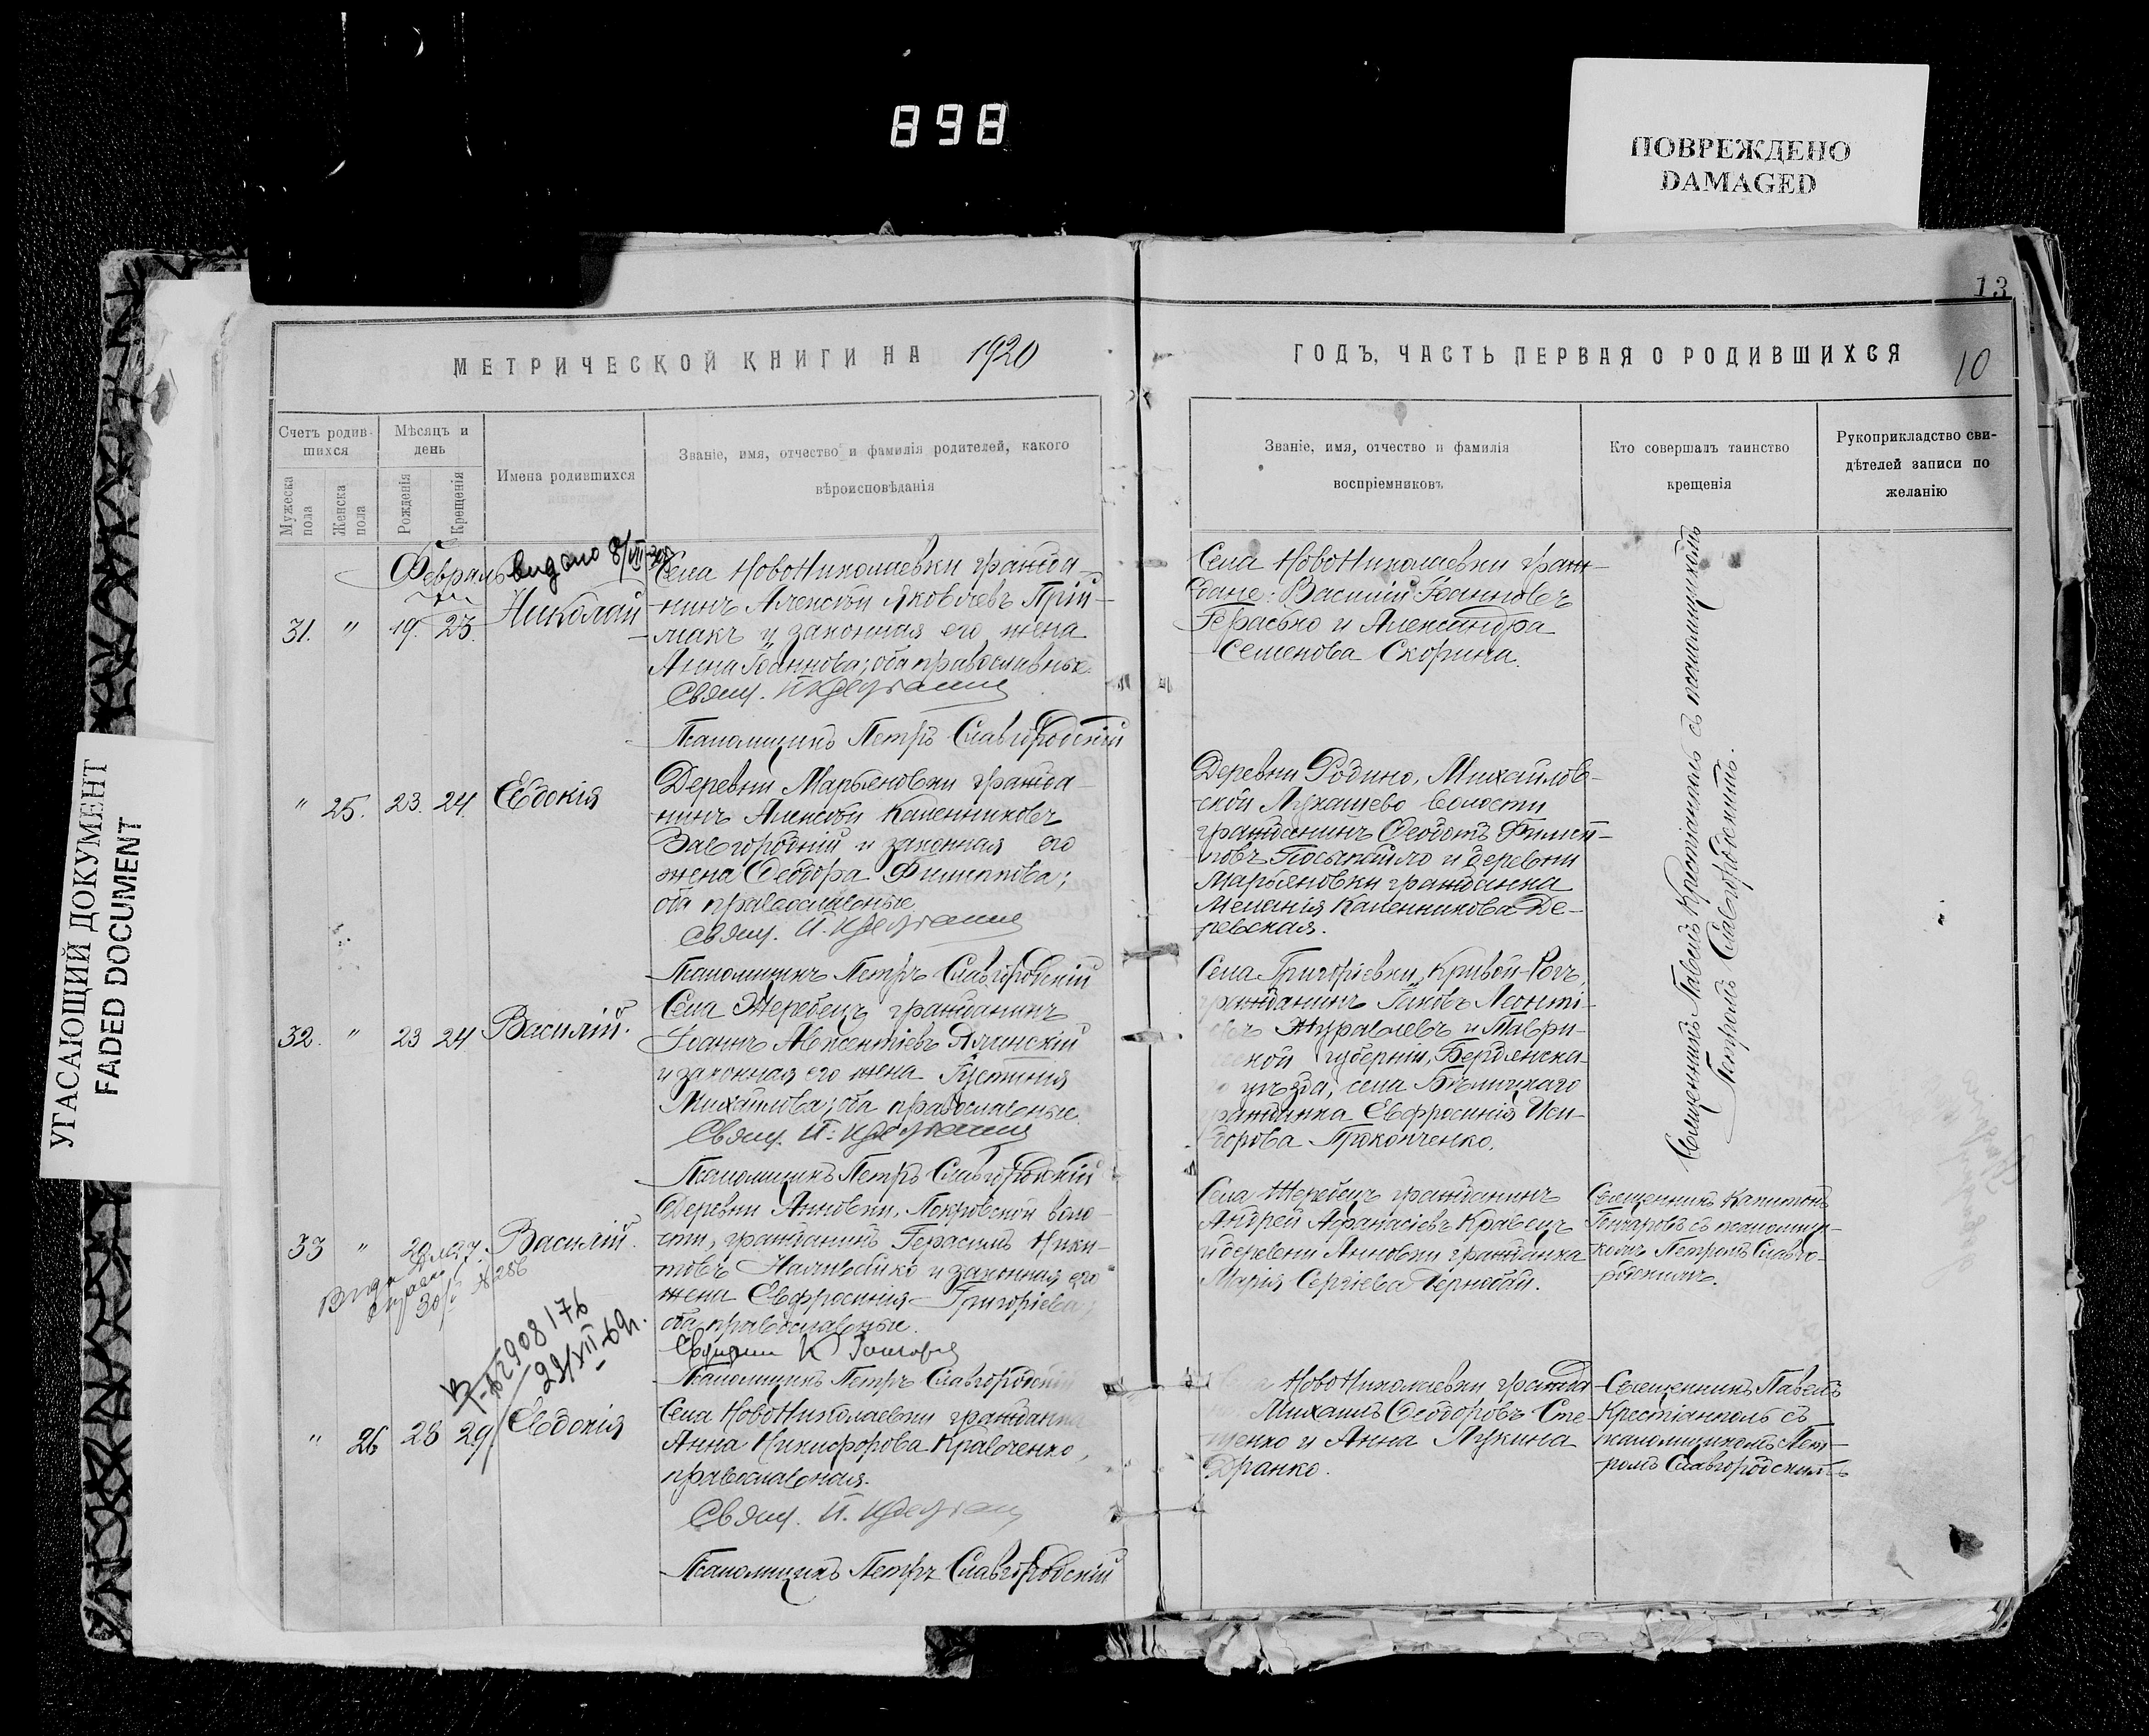 898
ПОВРЕЖДЕНО
DAMAGED
УГАСАЮЩИЙ ДОКУМЕНТ
FADED DOCUMENT
13
МЕТРИЧЕСКОЙ КНИГИ НА 1920
ГОДЪ, ЧАСТЬ ПЕРВАЯ О РОДИВШИХСЯ
10
Счетъ родив-
шихся
Мужеска
пола
Женска
пола
Мѣсяцъ и
день
Рожденія
Крещенія
Имена родившихся
Званіе, имя, отчество и фамилія родителей, какого
вѣроисповѣданія
Званіе, имя, отчество и фамилія
воспріемниковъ
Кто совершалъ таинство
крещенія
Рукоприкладство сви-
дѣтелей записи по
желанію
Февраль
видано 8/VII
31. " 19. 23. Николай
Села НовоНиколаевки гражда-
нинъ Алексѣй Яковлевъ Прій-
макъ и законная его жена
Анна Іоаннова; оба православные.
Свящ.
Псаломщикъ Петръ Славгородскій
Села НовоНиколаевки граж-
дане: Василій Іоанновъ
Герасько и Александра
Семенова Скорина.
Священникъ Павелъ Крестіанполь съ псаломщикомъ
Петромъ Славгородскимъ.
" 25. 23. 24. Евдокія
Деревни Марьяновки гражда-
нинъ Алексѣй Каленниковъ
Завгородній и законная его
жена Ѳеодора Филиппова;
оба православные
Свящ. П.
Псаломщикъ Петръ Славгородскій
Деревни Родино, Михайлов-
ской Лукашево волости
гражданинъ Ѳеодотъ Филип-
повъ и деревни
Марьяновки гражданка
Меланія Каленникова Де-
ревская.
32. " 23 24 Василій.
Села Жеребецъ гражданинъ
Іоаннъ Авксентіевъ Ялинскій
и законная его жена Іустинія
Михайлова; оба православные.
Свящ. П.
Псаломщикъ Петръ Славгородскій
Села Григорьевки, Кривой-Рогъ,
гражданинъ Іаковъ Леонті-
евъ Журавлевъ и Таври-
ческой губерніи, Бердянска-
го уѣзда, села Бѣлицкаго
гражданка Евфросинія Иси-
дорова Прокопченко.
33 " 27. Василій.
30 № 286
Деревни Анновки, Покровской воло-
сти, гражданинъ Герасимъ Ники-
товъ Наливайко и законная его
жена Евфросинія Григоріева;
оба православные.
Священникъ К Гончаровъ
Псаломщикъ Петръ Славгородскій
Села Жеребецъ гражданинъ
Андрей Аѳанасіевъ Кравецъ
и деревни Анновки гражданка
Марія Сергіева Чернибай.
Священникъ Капитонъ
Гончаровъ съ псаломщи-
комъ Петромъ Славго-
родскимъ.
2908176
29/XII-69г.
" 26 28 29. Евдокія
Села НовоНиколаевки гражданка
Анна Никифорова Кравченко,
православная.
Свящ. П.
Псаломщикъ Петръ Славгородскій
НовоНиколаевки гражда
Михаилъ Ѳеодоровъ Сте
ценко и Анна Лукина
Дранко.
Священникъ Павелъ
Крестіанполь съ
псаломщикомъ Пет-
ромъ Славгородскимъ